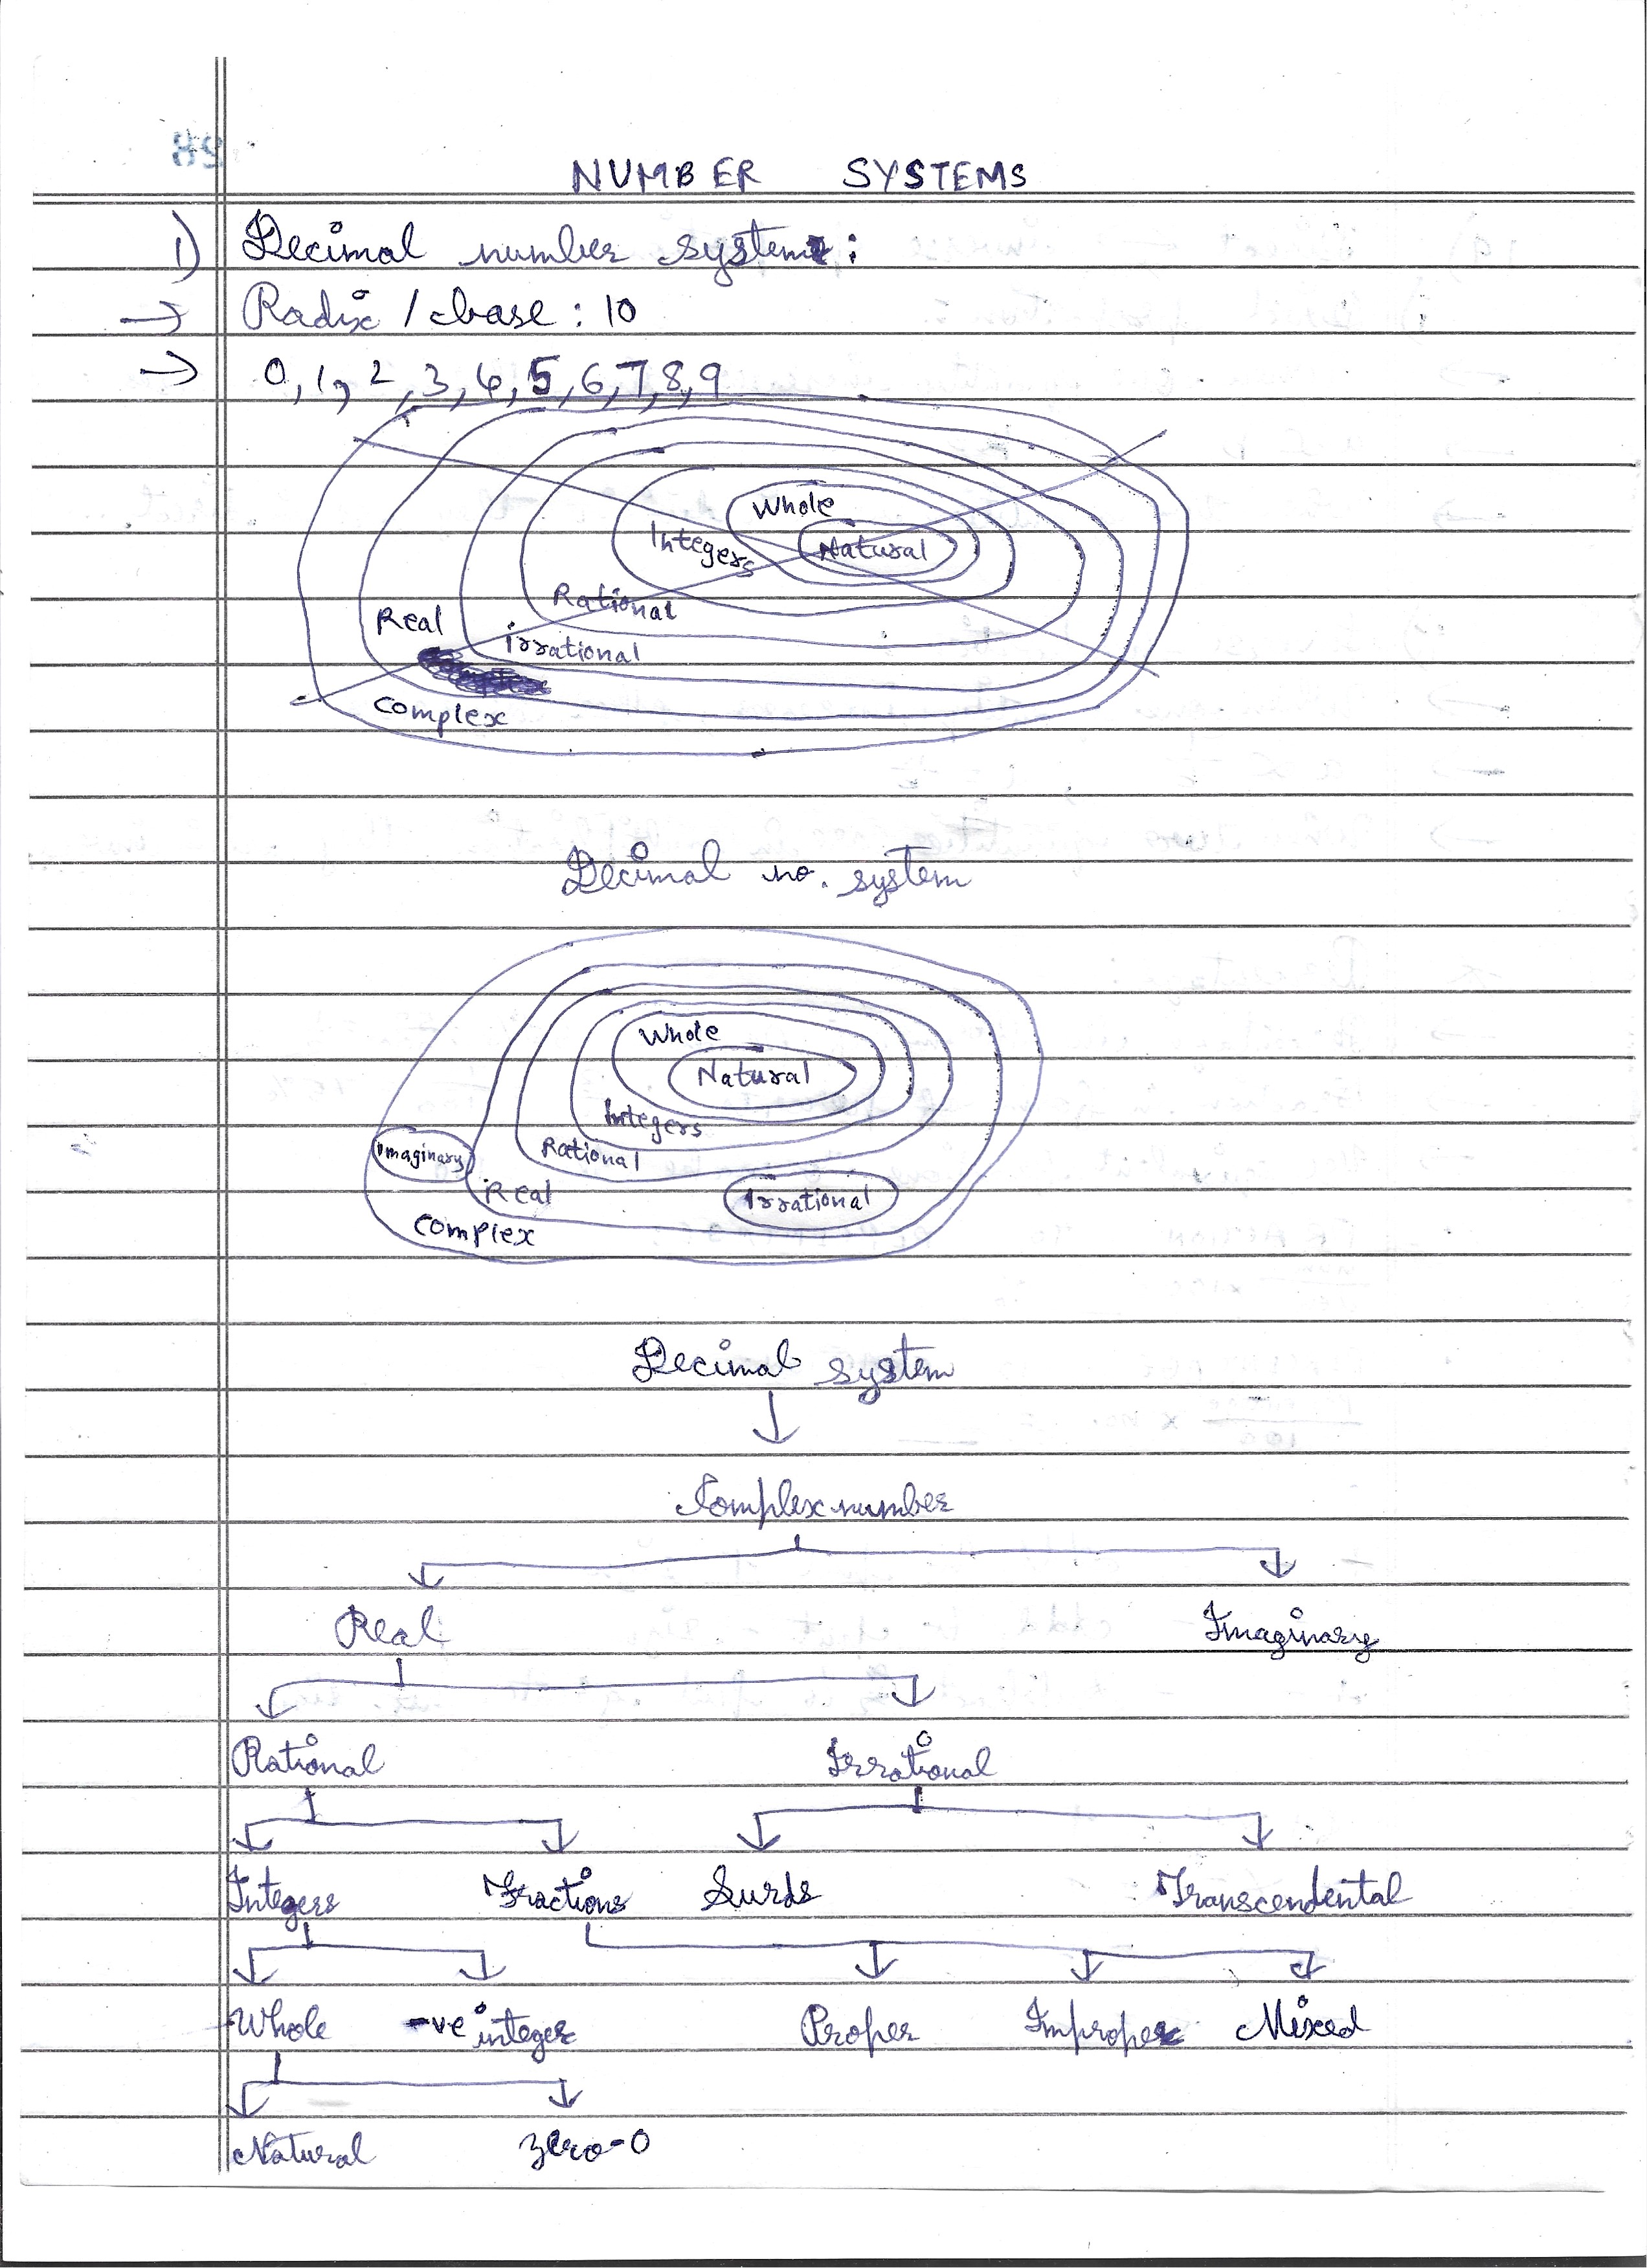 NUMBER SYSTEMS
1) Decimal number system:
→ Radix / base : 10
→ 0, 1, 2, 3, 4, 5, 6, 7, 8, 9
Whole
Natural
Integers
Rational
Real
irrational
Complex
Decimal no. system
Whole
Natural
Integers
Rational
Imaginary
Real
Irrational
Complex
Decimal system
Complex number
Real Imaginary
Rational Irrational
Integers Fractions Surds Transcendental
Whole -ve integer Proper Improper Mixed
Natural zero-0